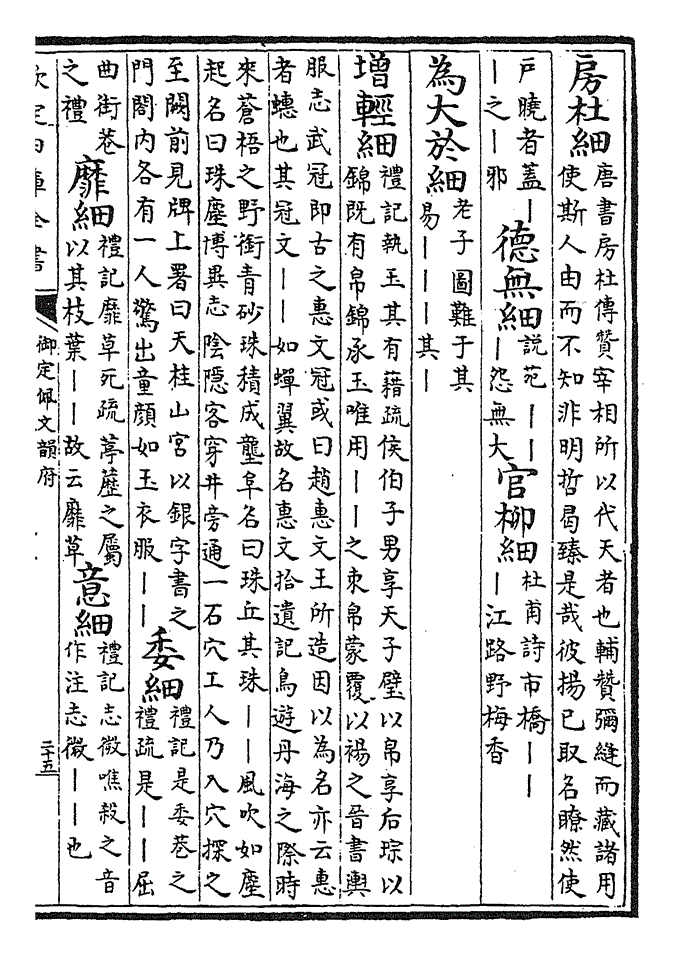 房杜細 唐書房杜傳贊宰相所以代天者也輔贊彌縫而藏諸用
使斯人由而不知非明哲曷臻是哉彼揚已取名瞭然使
戸曉者蓋｜
｜之｜邪
德無細 説苑｜｜
｜怨無大
官柳細 杜甫詩市橋｜｜
｜江路野梅香
為大於細 老子圖難于其
易｜｜｜其｜
增輕細 禮記執玉其有藉疏侯伯子男享天子璧以帛享后琮以
錦既有帛錦承玉唯用｜｜之朿帛蒙覆以裼之晉書輿
服志武冠即古之惠文冠或曰趙惠文王所造因以為名亦云惠
者蟪也其冠文｜｜如蟬翼故名惠文拾遺記鳥遊丹海之際時
來蒼梧之野銜青砂珠積成壟阜名曰珠丘其珠｜｜風吹如塵
起名曰珠塵博異志陰隱客穿井旁通一石穴工人乃入穴探之
至闕前見牌上署曰天桂山宫以銀字書之
門閣内各有一人驚出童顔如玉衣服｜｜
委細 禮記是委巷之
禮疏是｜｜屈
曲街巷
之禮
靡細 禮記靡草死疏葶藶之屬
以其枝葉｜｜故云靡草
意細 禮記志微噍殺之音
作注志微｜｜也
欽定四庫全書
御定佩文韻府
二十五